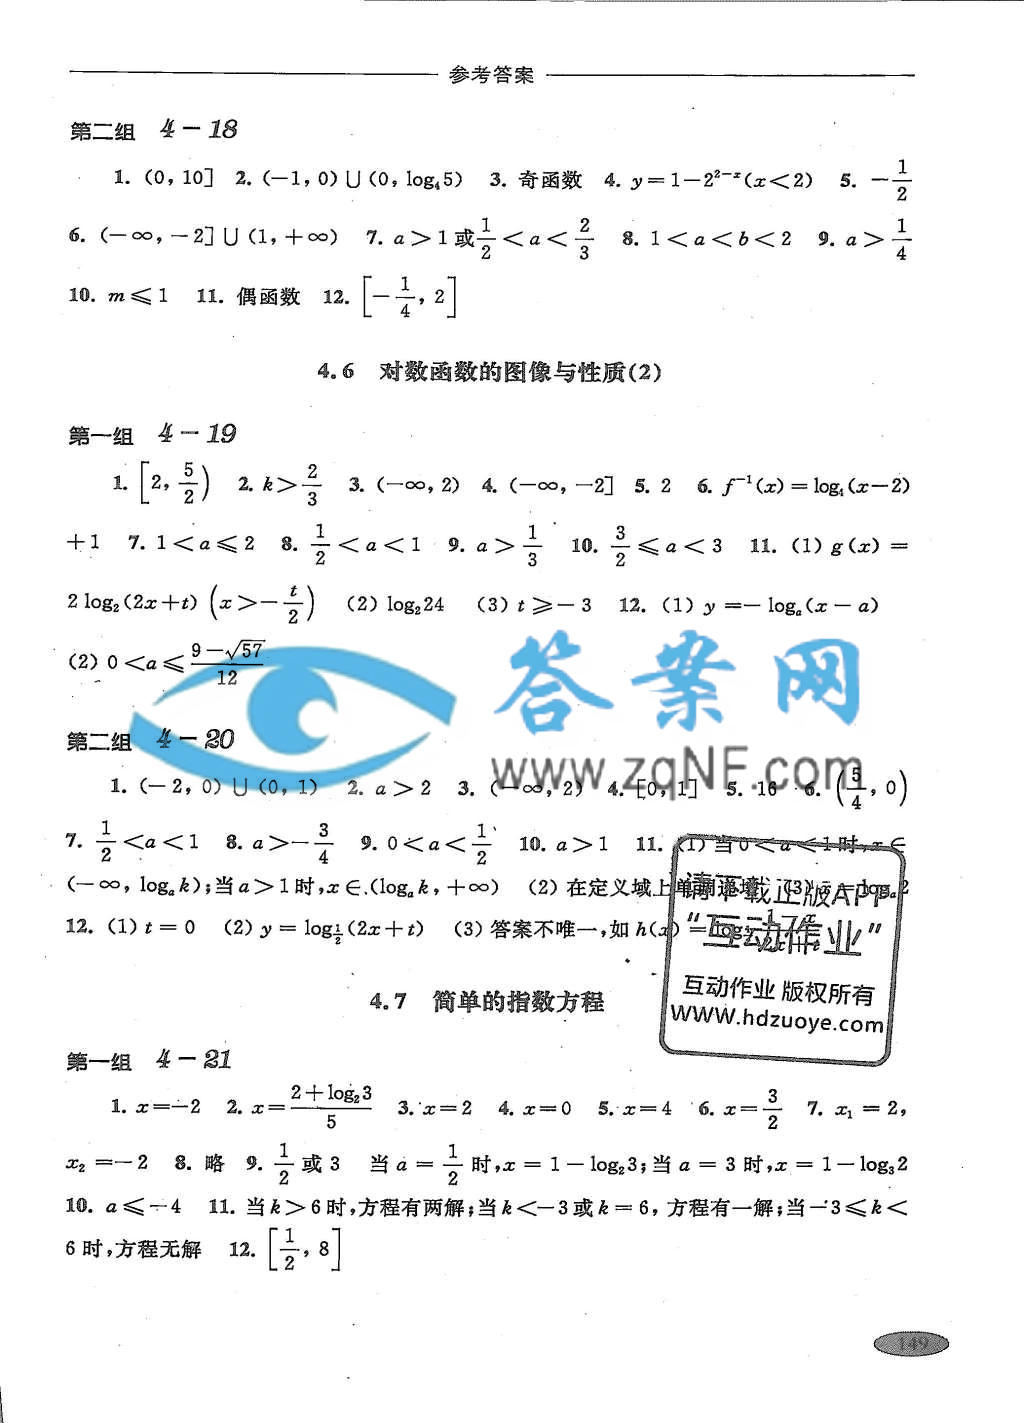 参考答案
第二组 4－18
1. (0, 10] 2. (－1, 0)∪(0, log₄5) 3. 奇函数 4. y＝1－2²⁻ˣ(x＜2) 5. －1/2
6. (－∞, －2]∪(1, ＋∞) 7. a＞1或1/2＜a＜2/3 8. 1＜a＜b＜2 9. a＞1/4
10. m≤1 11. 偶函数 12. [－1/4, 2]
4.6 对数函数的图像与性质(2)
第一组 4－19
1. [2, 5/2) 2. k＞2/3 3. (－∞, 2) 4. (－∞, －2] 5. 2 6. f⁻¹(x)＝log₄(x－2)
＋1 7. 1＜a≤2 8. 1/2＜a＜1 9. a＞1/3 10. 3/2≤a＜3 11. (1) g(x)＝
2 log₂(2x＋t) (x＞－t/2) (2) log₂24 (3) t≥－3 12. (1) y＝－logₐ(x－a)
(2) 0＜a≤(9－√57)/12
第二组 4－20
1. (－2, 0)∪(0, 1) 2. a＞2 3. (－∞, 2) 4. [0, 1] 5. 16 6. (5/4, 0)
7. 1/2＜a＜1 8. a＞－3/4 9. 0＜a＜1/2 10. a＞1 11. (1) 当0＜a＜1时, x∈
(－∞, logₐk); 当a＞1时, x∈(logₐk, ＋∞) (2) 在定义域上单调递增 (3) logₐ2
12. (1) t＝0 (2) y＝log½(2x＋t) (3) 答案不唯一, 如 h(x)＝log
4.7 简单的指数方程
第一组 4－21
1. x＝－2 2. x＝(2＋log₂3)/5 3. x＝2 4. x＝0 5. x＝4 6. x＝3/2 7. x₁＝2,
x₂＝－2 8. 略 9. 1/2或3 当a＝1/2时, x＝1－log₂3; 当a＝3时, x＝1－log₃2
10. a≤－4 11. 当k＞6时, 方程有两解; 当k＜－3或k＝6, 方程有一解; 当－3≤k＜
6时, 方程无解 12. [1/2, 8]
149
答案网
www.zqNF.com
请下载正版APP
“互动作业”
互动作业 版权所有
www.hdzuoye.com